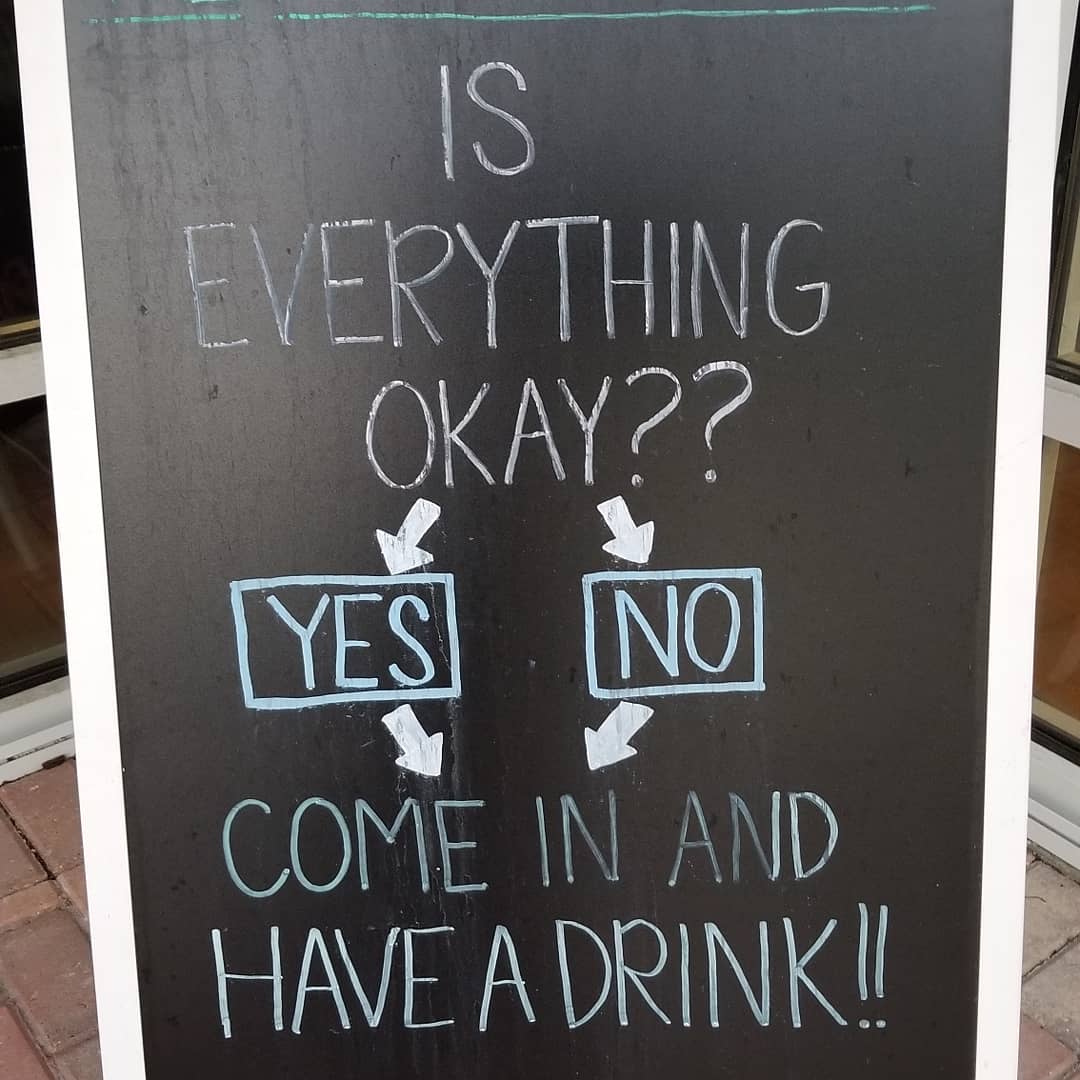 IS
EVERYTHING
OKAY??
YES NO
COME IN AND
HAVE A DRINK!!